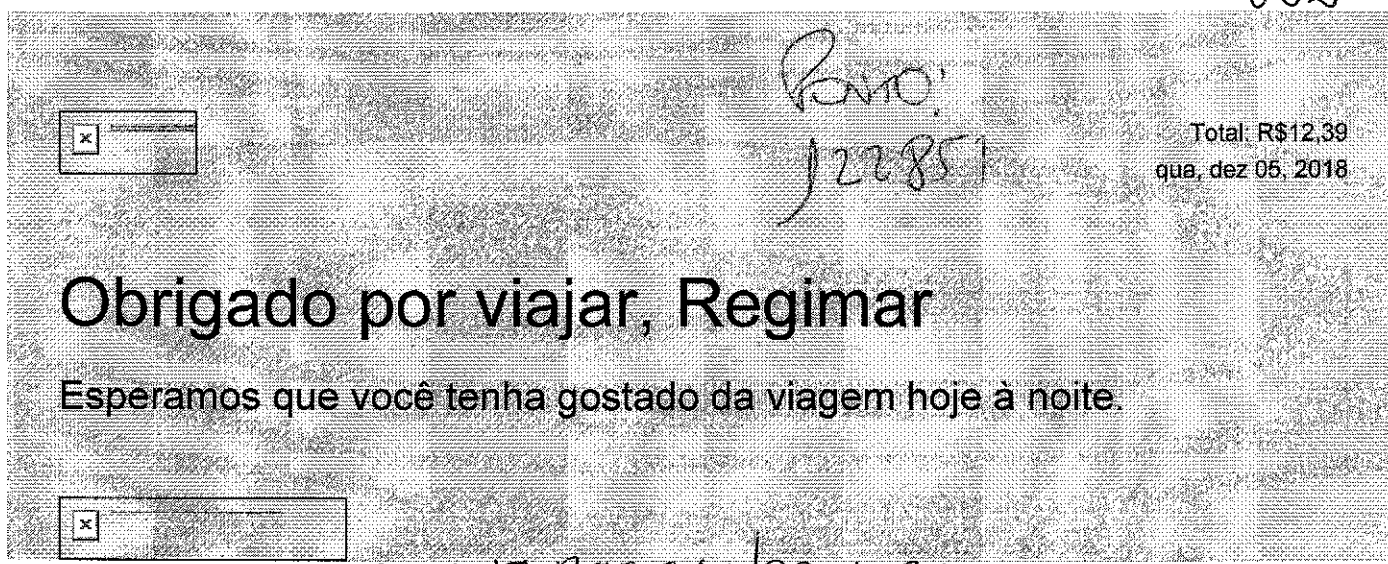 Ponto:
122851
Total: R$12,39
qua, dez 05, 2018
Obrigado por viajar, Regimar
Esperamos que você tenha gostado da viagem hoje à noite.